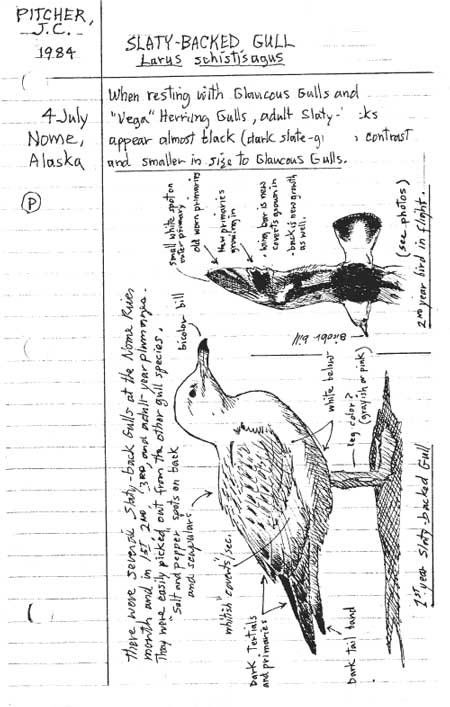 PITCHER,
J.C.
1984
SLATY-BACKED GULL
Larus schistisagus
4 July
Nome,
Alaska
P
When resting with Glaucous Gulls and
"Vega" Herring Gulls, adult Slaty-
appear almost black (dark slate- contrast
and smaller in size to Glaucous Gulls.
small white spot on
outer primary
old worn primaries
New primaries
growing in
wing bar is new
coverts grown in
- back is new growth
as well.
(see photos)
2ND year bird in flight.
Bicolor bill
There were several Slaty-back Gulls at the Nome River
mouth and in 1ST 2ND, 3RD and adult-year plumages.
They were easily picked out from the other gull species.
bicolor bill
"Salt and pepper" spots on back
and scapulars
whitish coverts/sec.
Dark Tertials
and primaries
Dark tail band
white below
leg color?
(grayish or pink)
1st year Slaty-backed Gull